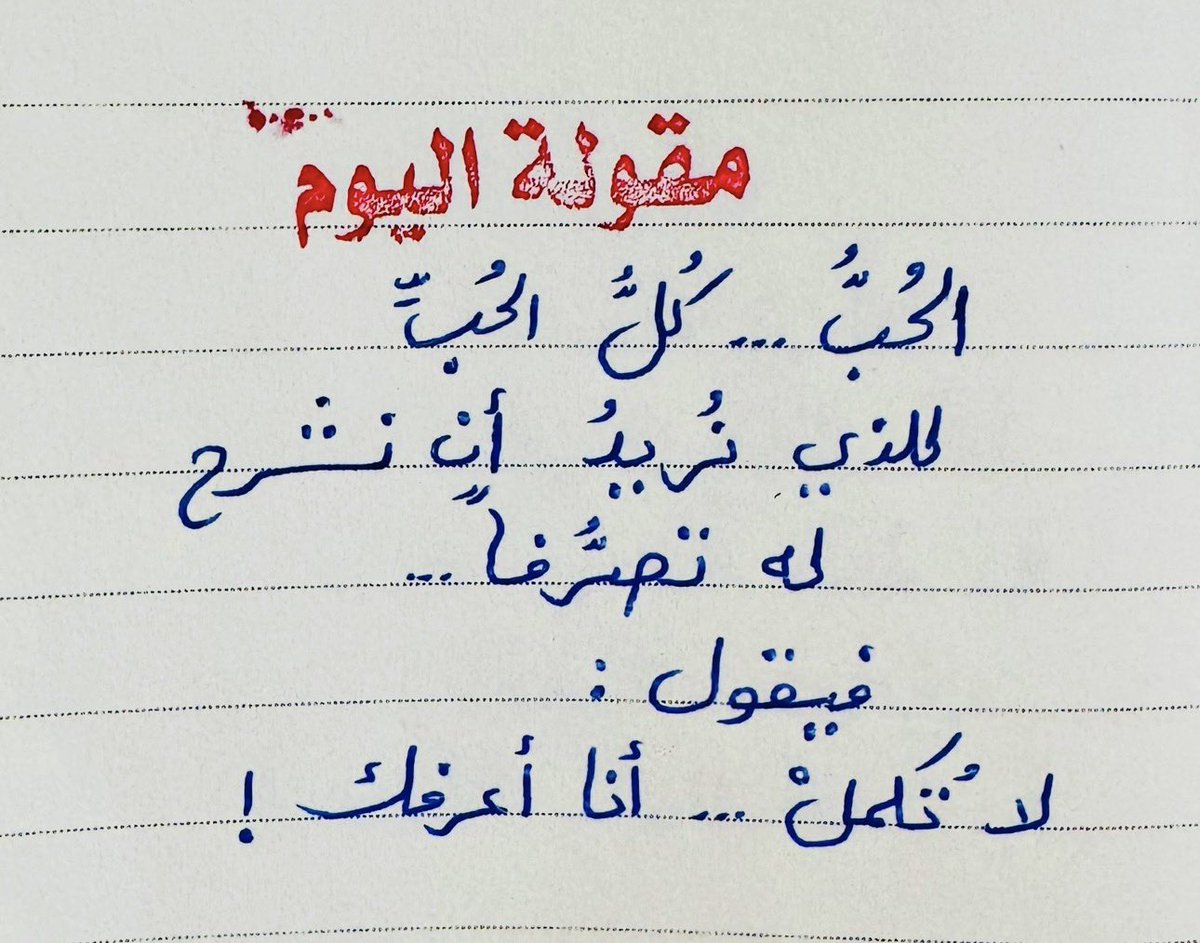 مقولة اليوم
الحُبُّ ... كُلُّ الحُبِّ
للذي نُريدُ أن نشرح
له تصرُّفاً ...
فيقول :
لا تُكملْ ... أنا أعرفك !